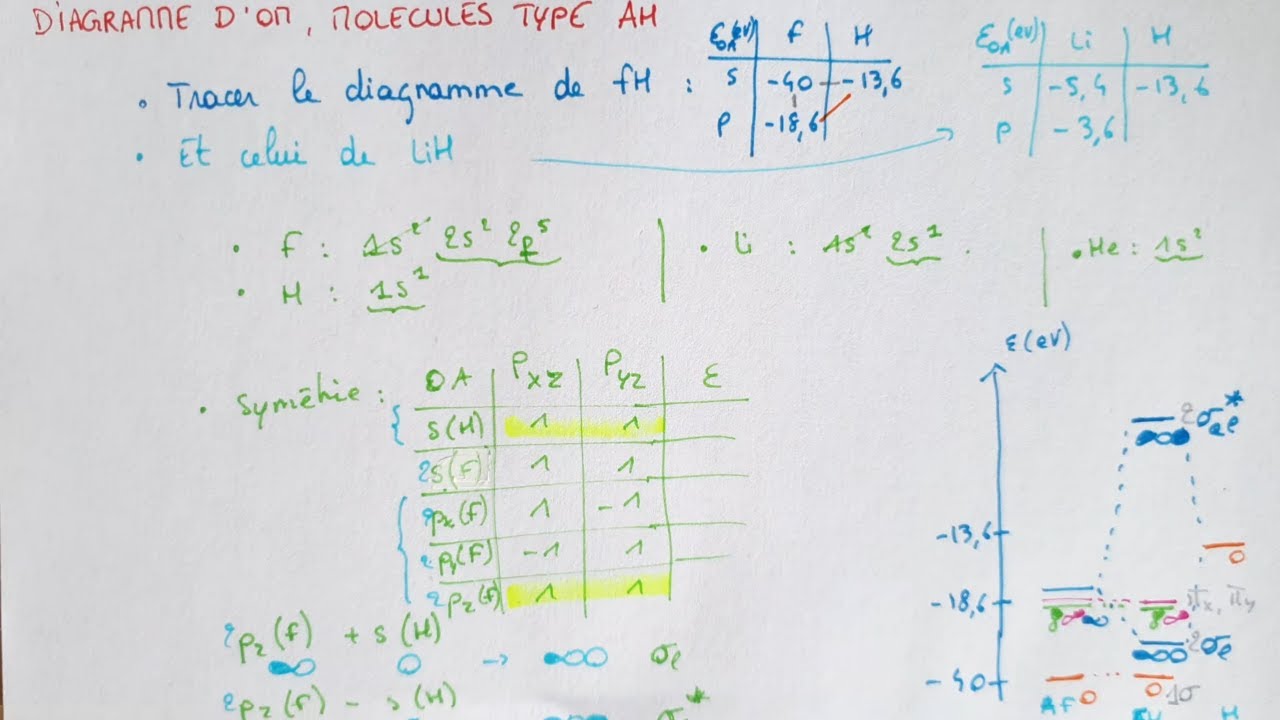 DIAGRAMME D'OM, MOLECULES TYPE AH
• Tracer le diagramme de fH :
• Et celui de LiH
ε_OA (eV) | f | H
s | -40 | -13,6
p | -18,6
ε_OA (eV) | Li | H
s | -5,4 | -13,6
p | -3,6
• f : 1s² 2s² 2p⁵
• H : 1s¹
• Li : 1s² 2s¹.
• He : 1s²
• Symétrie :
OA | P_xz | P_yz | ε
s(H) | 1 | 1
2s(f) | 1 | 1
2p_x(f) | 1 | -1
2p_y(F) | -1 | 1
2p_z(f) | 1 | 1
2p_z(f) + s(H)
→ σ_e
2p_z(f) - s(H)
σ*
ε(eV)
2σ_ae*
-13,6
-18,6
π_x, π_y
2σ_e
-40
1σ
AF
H